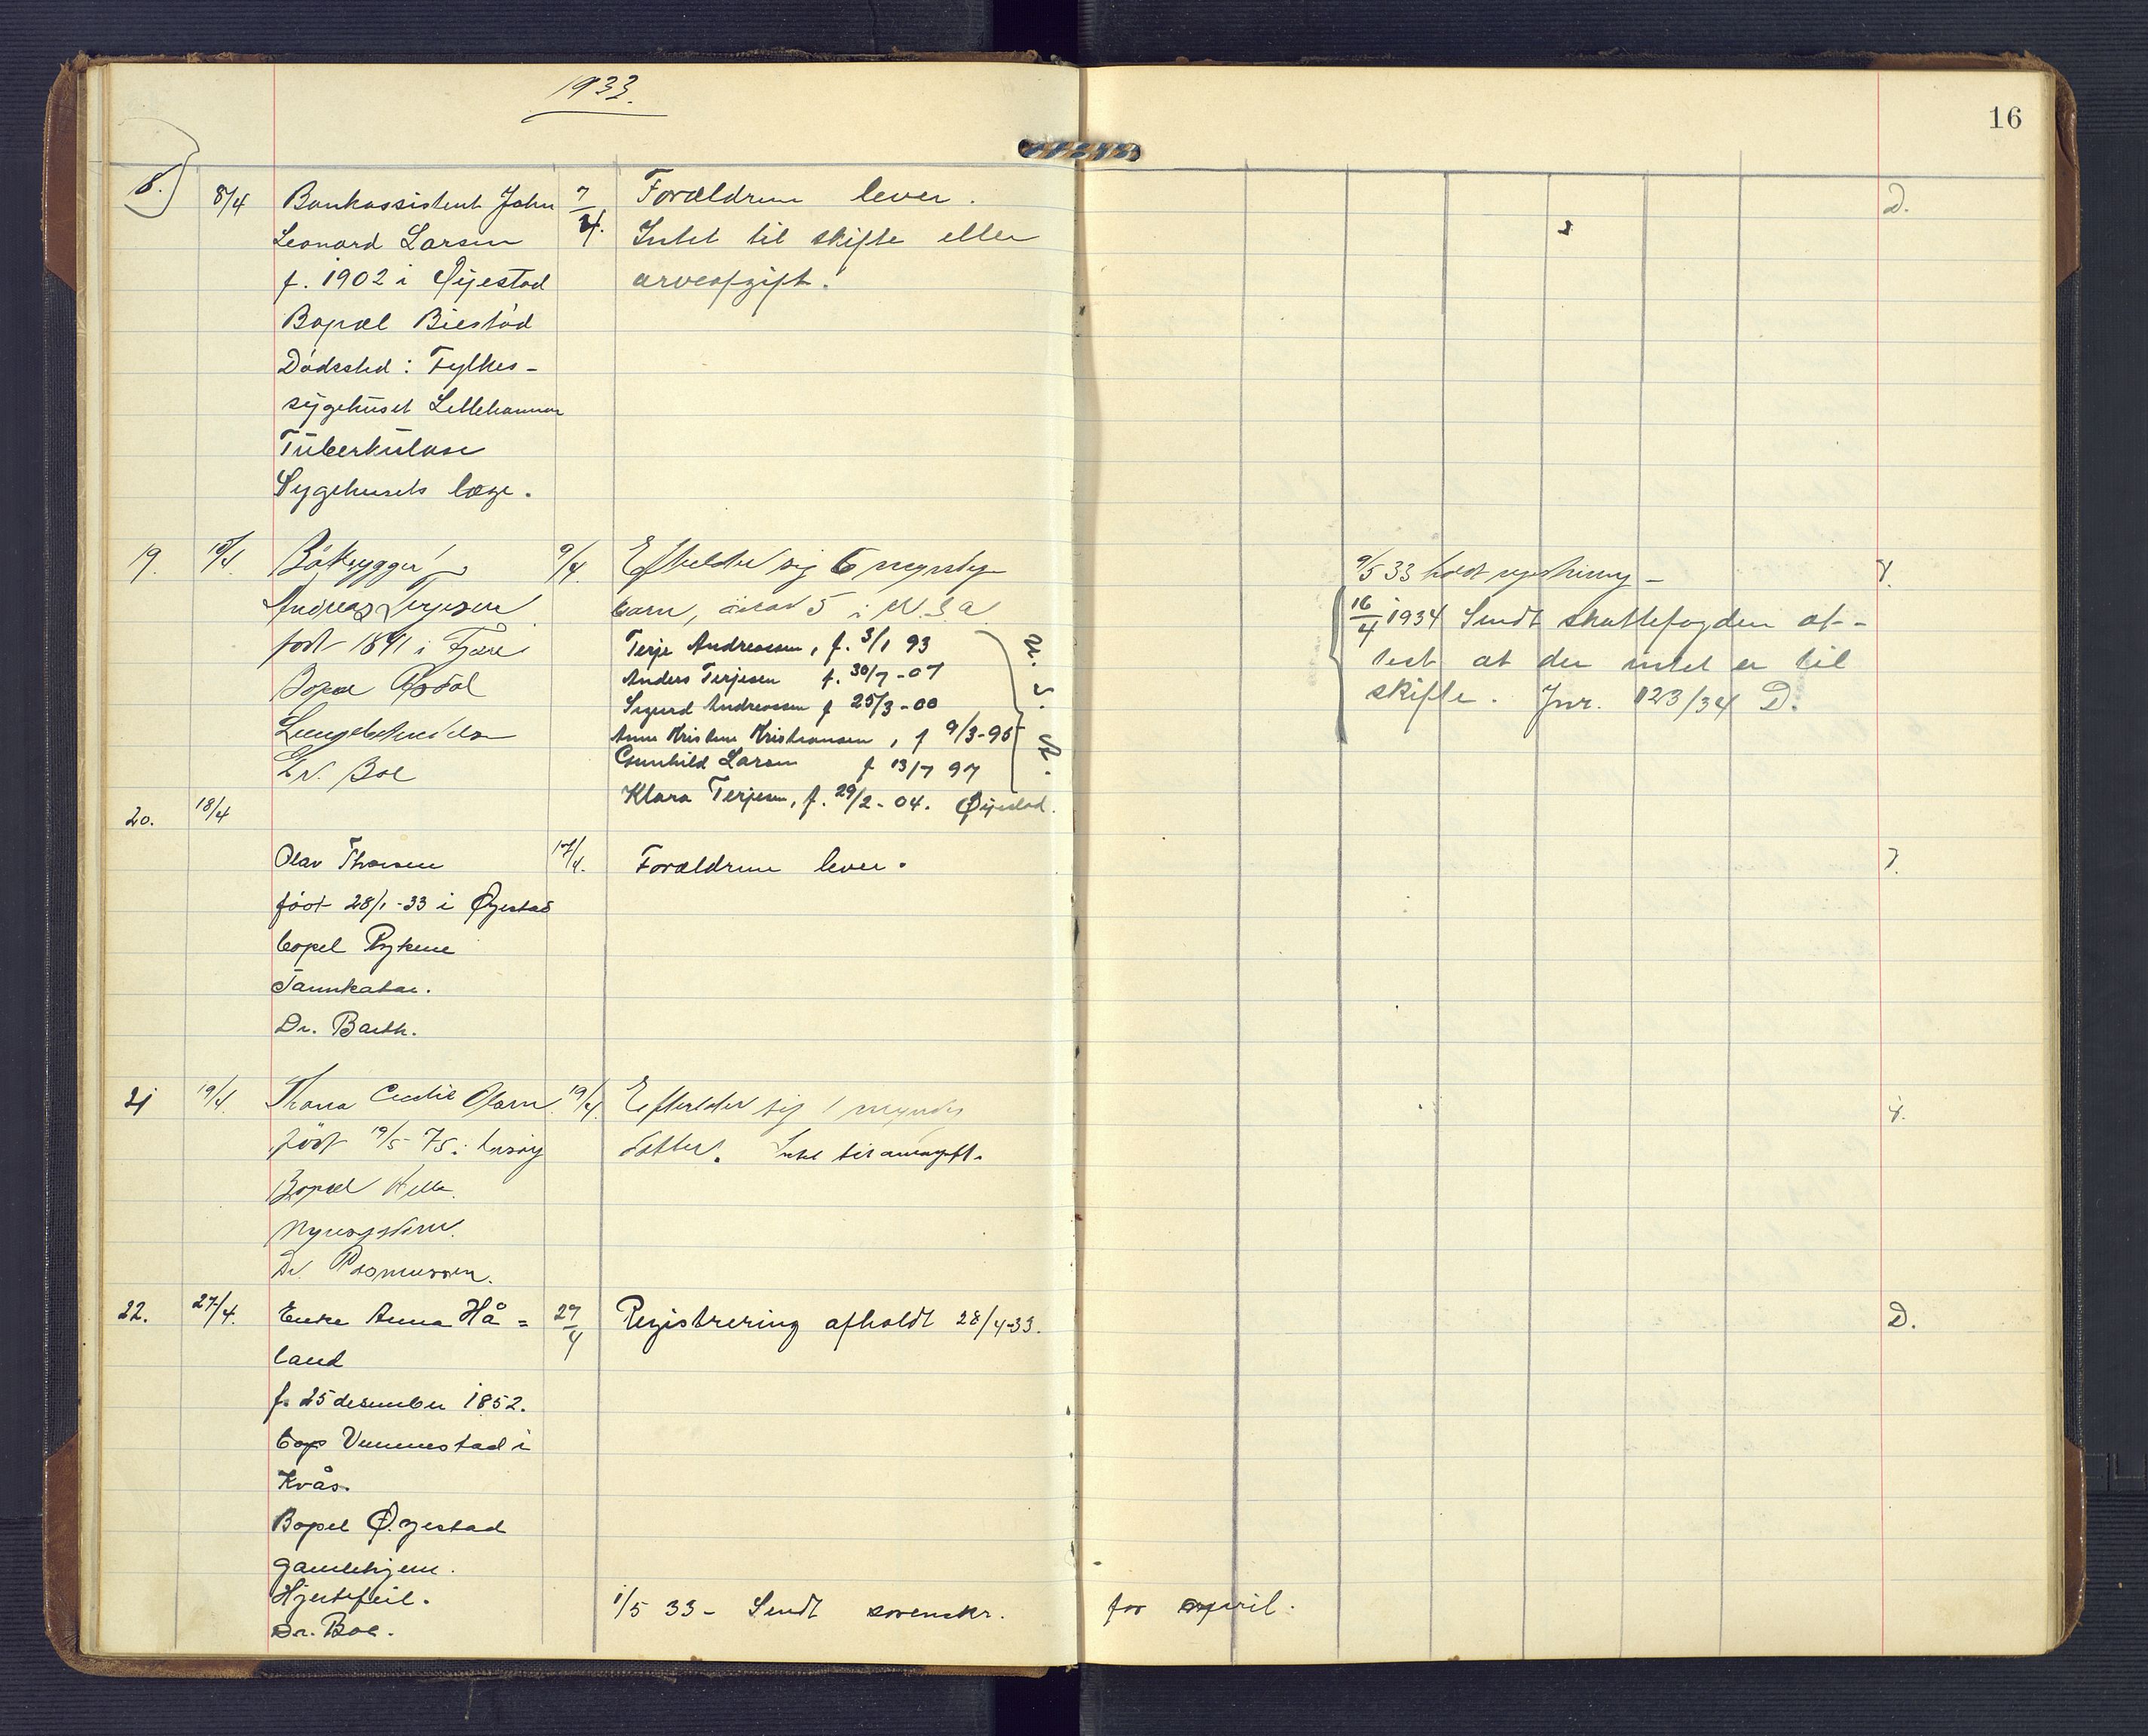 1933.
16
8.
8/4
Bankassistent John
Leonard Larsen
f. 1902 i Øijestad
Bopæl Biestød
Dødssted: Fylkes-
sygehuset Lillehammer
Tuberkulose
Sygehusets læge.
7/4.
Forældrene lever.
Intet til skifte eller
arveafgift.
D.
19.
10/4.
Båtbygger
Andreas Terjesen
født 1841 i Fjære
Bopæl
Lungebetendelse
Dr. Boe
9/4.
Efterlater sig 6 myndige
barn, derav 5 i U.S.A.
Terje Andreassen, f. 3/1 93
Anders Terjesen f. 30/7-07
Sigurd Andreassen f 25/3-00
Anne Kristine Kristiansen, f 9/3-95
Gunhild Larsen f 13/7 97
U. S. A.
Klara Terjesen, f. 29/2-04. Øijestad.
9/5 33 holdt registrering -
16/4 1934 Sendt skattefogden at-
test at der intet er til
skifte. Jnr. 1123/34 D.
20.
18/4
Olav Thorsen
født 28/1-33 i Øyestad
bopel Rykene
Tarmkatar.
Dr. Barth.
17/4.
Forældrene lever.
21
19/4.
Thona Cecilie Olsen
født 19/5-75 i
Bopæl
Dr. Rasmussen.
19/4.
Efterlater sig 1 myndig
datter. Intet til arveavgift.
22.
27/4.
Enke Anna Hå=
land
f. 25 desember 1852.
Kvås.
Bopel Øyestad
gamlehjem.
Hjertefeil.
Dr. Boe.
27/4
Registrering afholdt 28/4-33.
D.
1/5 33- Sendt sorenskr. for april.